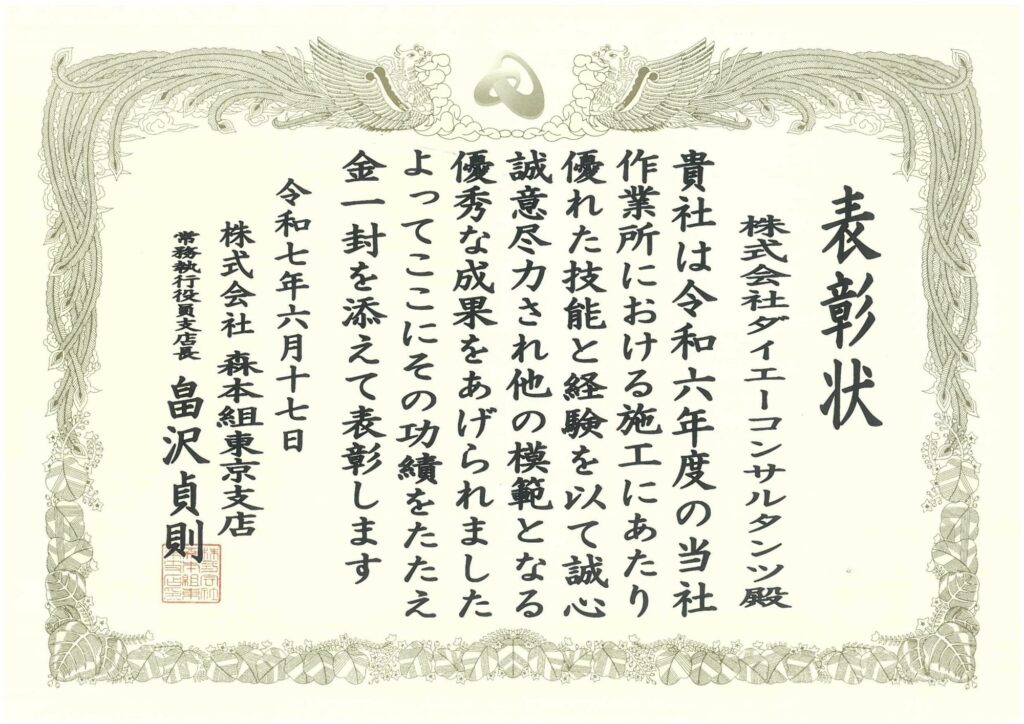 表彰状
株式会社ダイエーコンサルタンツ殿
貴社は令和六年度の当社
作業所における施工にあたり
優れた技能と経験を以て誠心
誠意尽力され他の模範となる
優秀な成果をあげられました
よってここにその功績をたたえ
金一封を添えて表彰します
令和七年六月十七日
株式会社 森本組東京支店
常務執行役員支店長 畠沢貞則